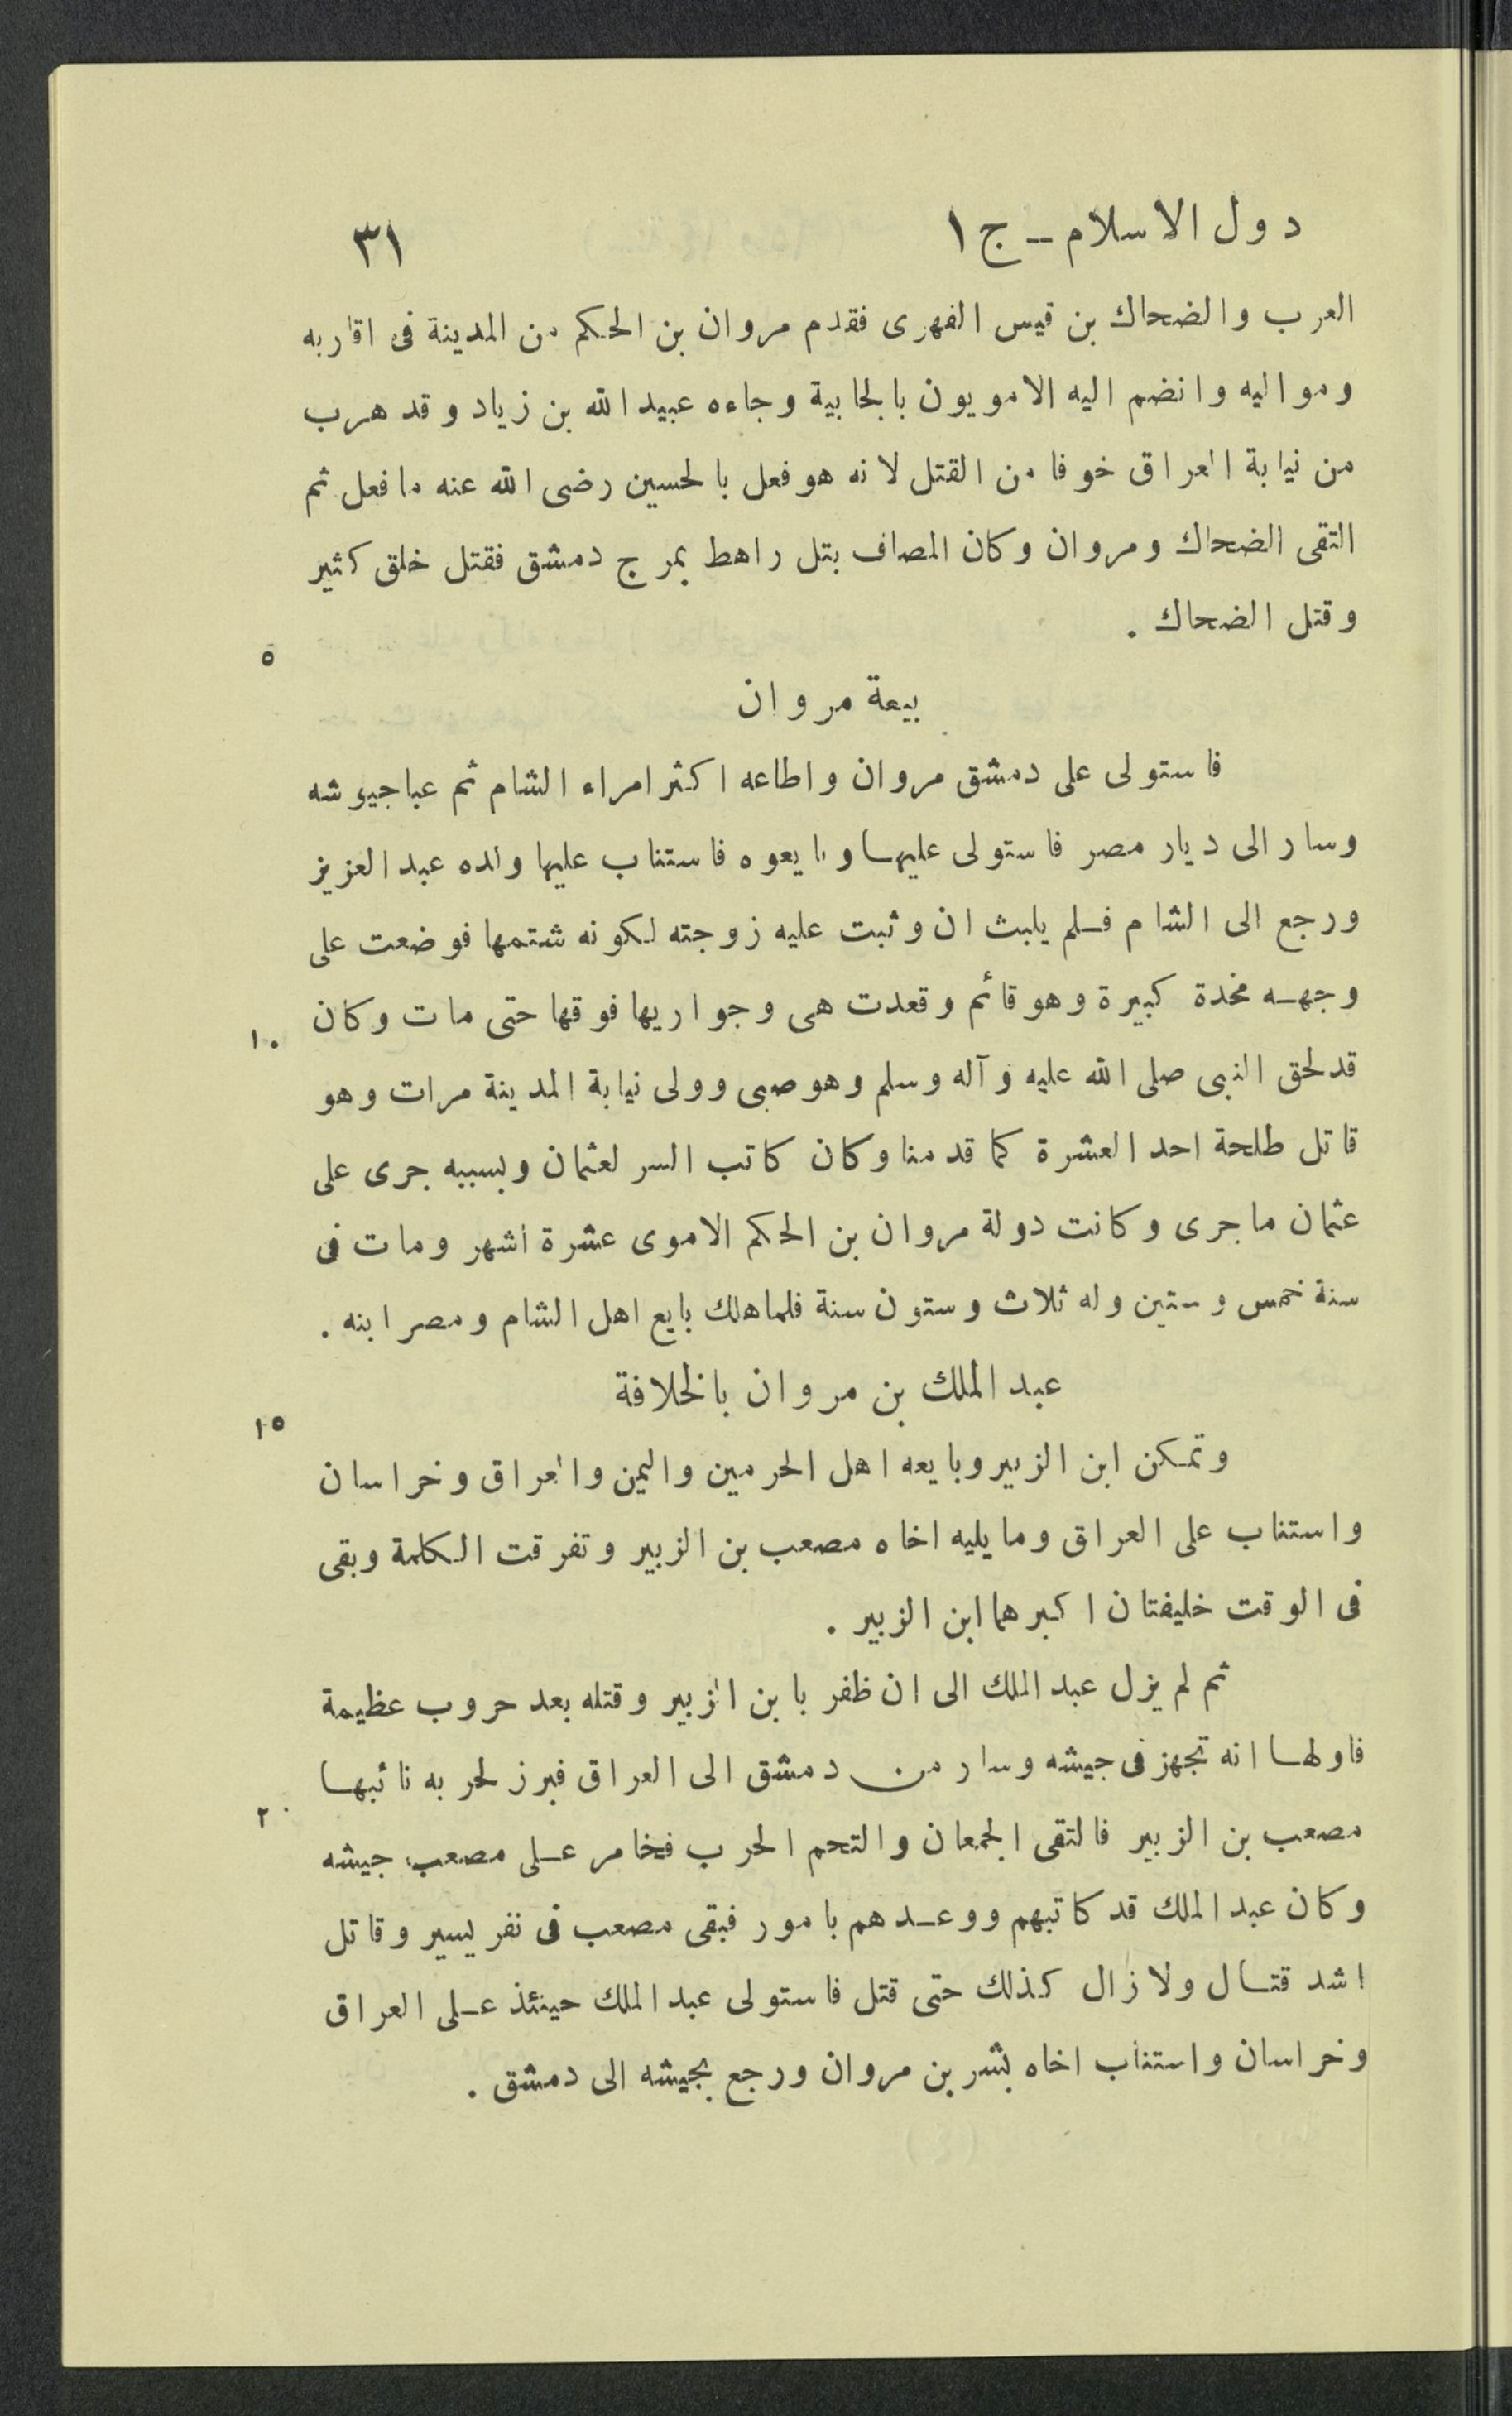 دول الاسلام - ج ١ ٣١
العرب والضحاك بن قيس الفهرى فقدم مروان بن الحكم من المدينة فى اقاربه
ومواليه وانضم اليه الامويون بالجابية وجاءه عبيد الله بن زياد وقد هرب
من نيابة العراق خوفا من القتل لانه هو فعل بالحسين رضى الله عنه ما فعل ثم
التقى الضحاك ومروان وكان المصاف بتل راهط بمرج دمشق فقتل خلق كثير
وقتل الضحاك .
٥
بيعة مروان
فاستولى على دمشق مروان واطاعه اكثر امراء الشام ثم عبا جيوشه
وسار الى ديار مصر فاستولى عليها وبايعوه فاستناب عليها ولده عبد العزيز
ورجع الى الشام فلم يلبث ان وثبت عليه زوجته لكونه شتمها فوضعت على
وجهه مخدة كبيرة وهو قائم وقعدت هى وجواريها فوقها حتى مات وكان
١٠
قد لحق النبى صلى الله عليه وآله وسلم وهو صبى وولى نيابة المدينة مرات وهو
قاتل طلحة احد العشرة كما قدمنا وكان كاتب السر لعثمان وبسببه جرى على
عثمان ما جرى وكانت دولة مروان بن الحكم الاموى عشرة اشهر ومات فى
سنة خمس وستين وله ثلاث وستون سنة فلما هلك بايع اهل الشام ومصر ابنه .
عبد الملك بن مروان بالخلافة
١٥
وتمكن ابن الزبير وبايعه اهل الحرمين واليمن والعراق وخراسان
واستناب على العراق وما يليه اخاه مصعب بن الزبير وتفرقت الكلمة وبقى
فى الوقت خليفتان اكبرهما ابن الزبير .
ثم لم يزل عبد الملك الى ان ظفر بابن الزبير وقتله بعد حروب عظيمة
فاولها انه تجهز فى جيشه وسار من دمشق الى العراق فبرز لحربه نائبها
٢٠
مصعب بن الزبير فالتقى الجمعان والتحم الحرب فخامر على مصعب جيشه
وكان عبد الملك قد كاتبهم ووعدهم بامور فبقى مصعب فى نفر يسير وقاتل
اشد قتال ولا زال كذلك حتى قتل فاستولى عبد الملك حينئذ على العراق
وخراسان واستناب اخاه بشر بن مروان ورجع بجيشه الى دمشق .